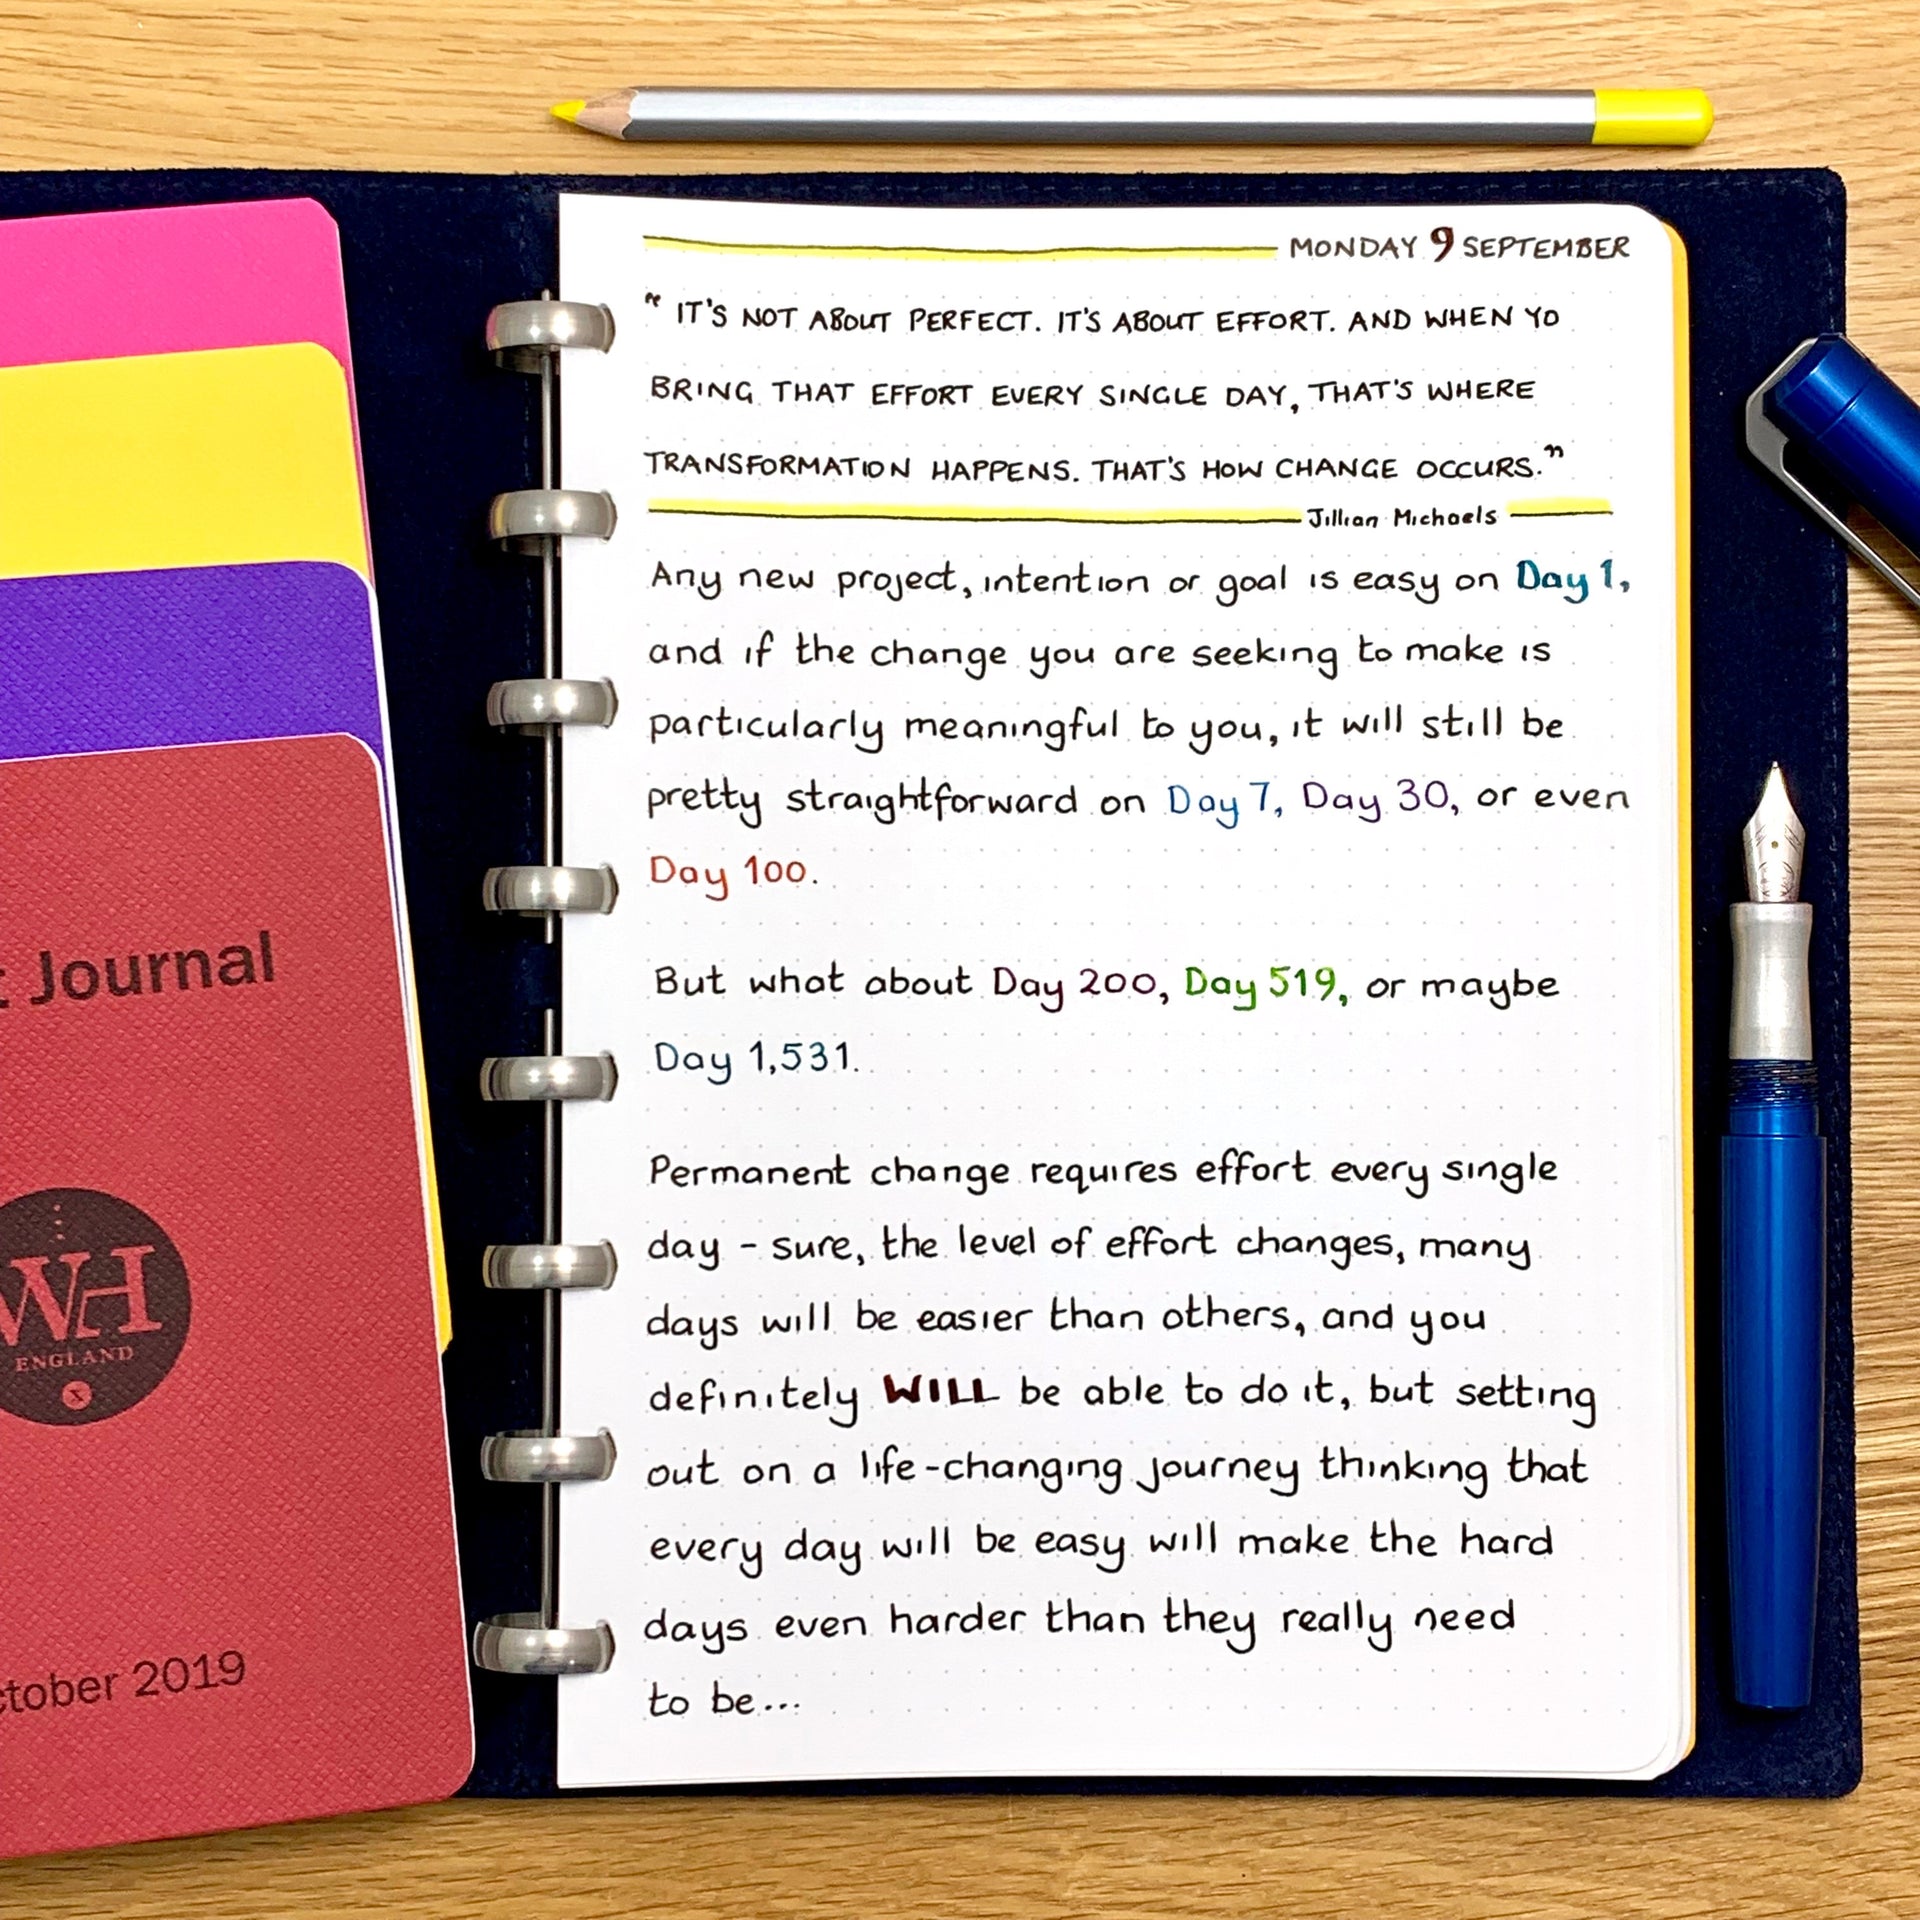 MONDAY 9 SEPTEMBER
" IT'S NOT ABOUT PERFECT. IT'S ABOUT EFFORT. AND WHEN YO
BRING THAT EFFORT EVERY SINGLE DAY, THAT'S WHERE
TRANSFORMATION HAPPENS. THAT'S HOW CHANGE OCCURS."
Jillian Michaels
Any new project, intention or goal is easy on Day 1,
and if the change you are seeking to make is
particularly meaningful to you, it will still be
pretty straightforward on Day 7, Day 30, or even
Day 100.
But what about Day 200, Day 519, or maybe
Day 1,531.
Permanent change requires effort every single
day - sure, the level of effort changes, many
days will be easier than others, and you
definitely WILL be able to do it, but setting
out on a life-changing journey thinking that
every day will be easy will make the hard
days even harder than they really need
to be...
Journal
WH
ENGLAND
X
tober 2019